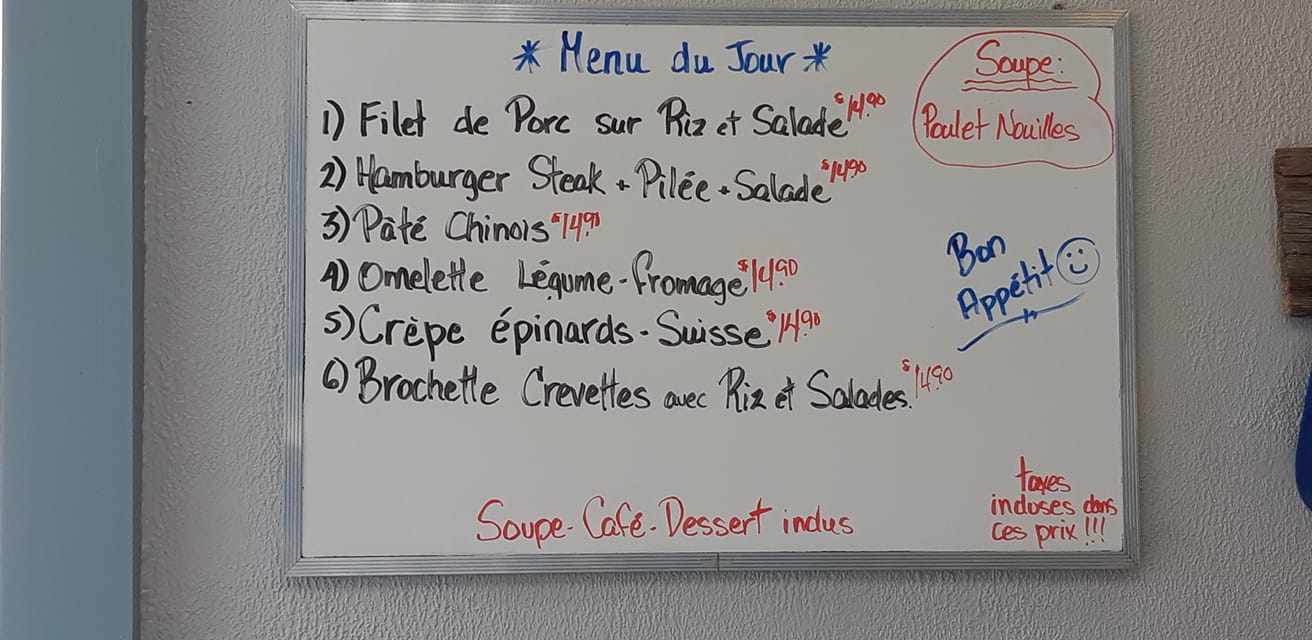 * Menu du Jour *
1) Filet de Porc sur Riz et Salade $14.90
2) Hamburger Steak + Pilée + Salade $14.90
3) Pâté Chinois $14.90
4) Omelette Légume - fromage $14.90
5) Crèpe épinards - Suisse $14.90
6) Brochette Crevettes avec Riz et Salades. $14.90
Soupe:
Poulet Nouilles
Bon
Appétit
Soupe - Café - Dessert inclus
taxes
incluses dans
ces prix!!!